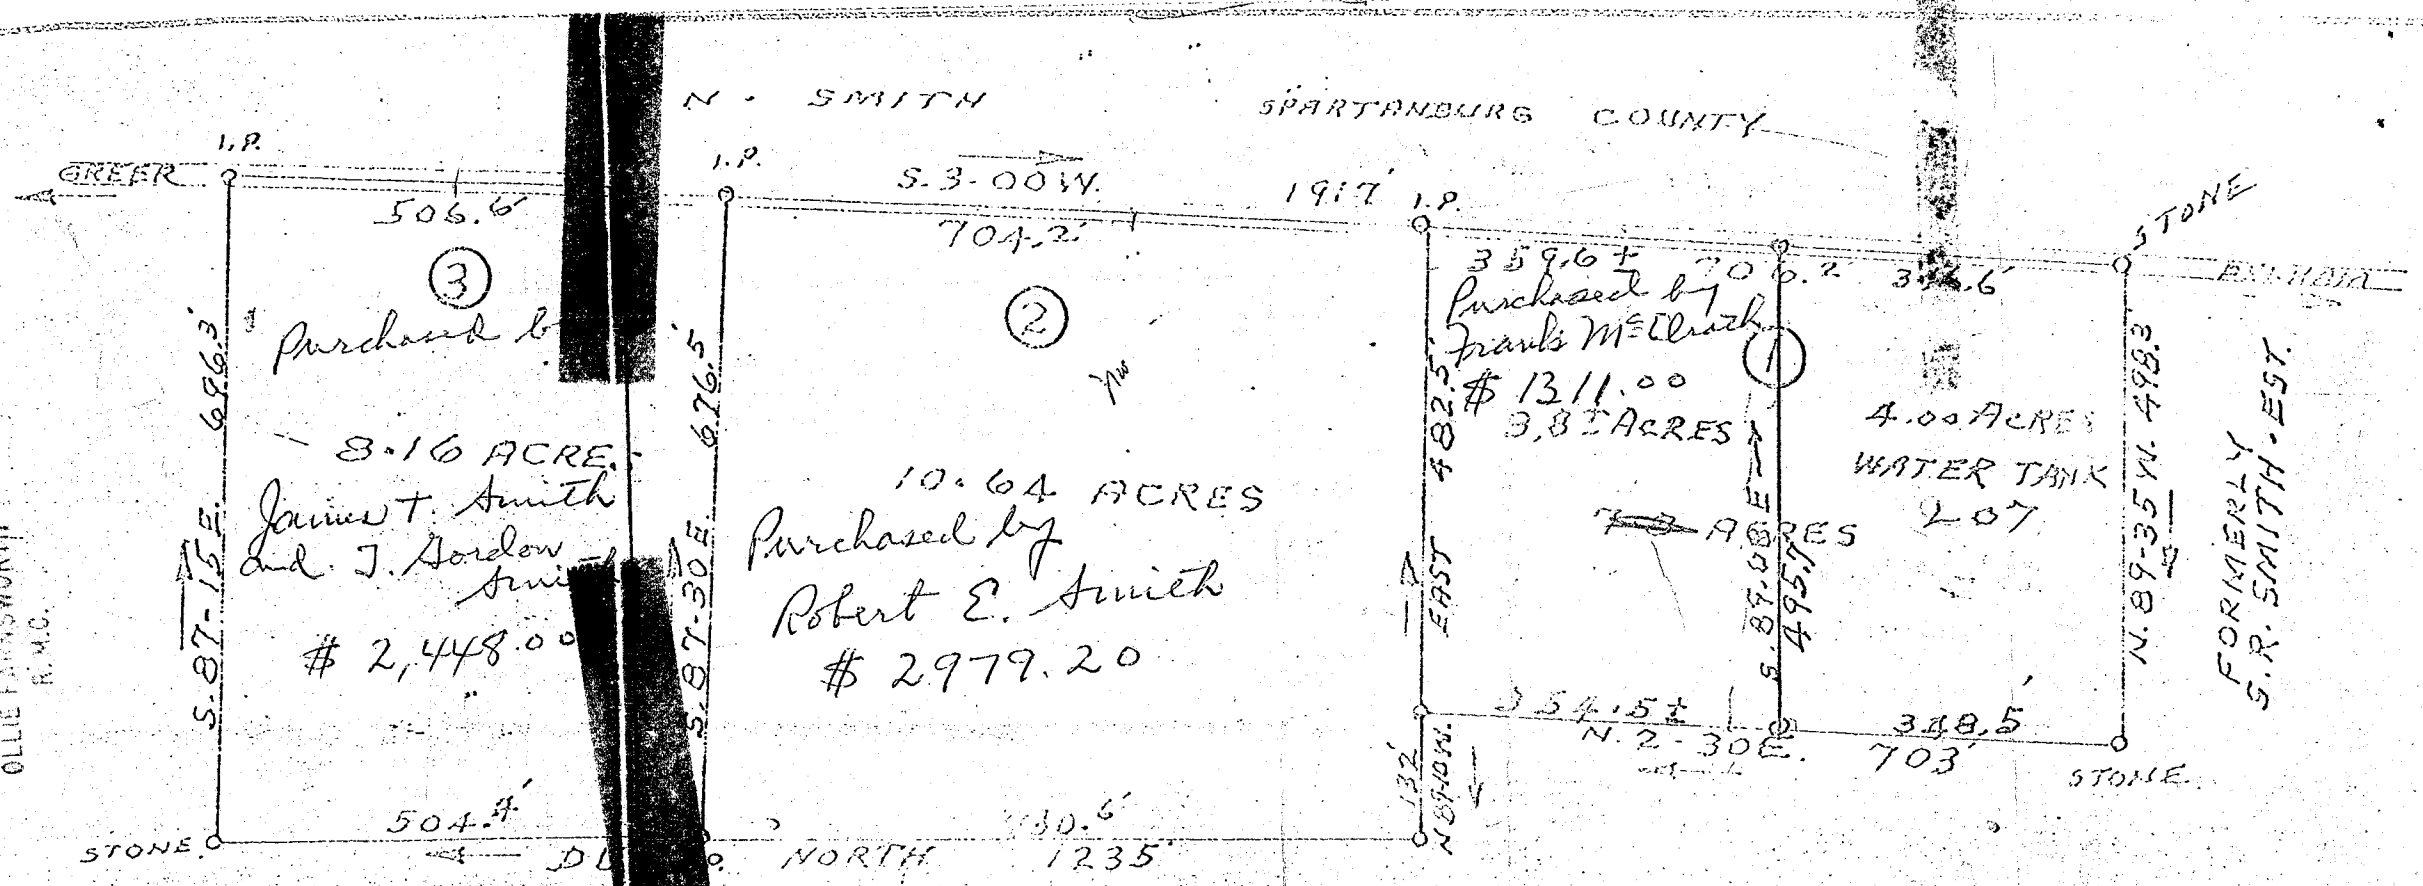 N. SMITH SPARTANBURG COUNTY
GREER
I.P.
I.P.
S. 3-00 W.
1917'
I.P.
STONE
506.6'
704.2'
359.6 ±
706.2'
3
Purchased
8.16 ACRE
James T. Smith
and J. Gordon
Smith
$ 2,448.00
S. 87-15 E. 696.3'
S. 87-30 E. 676.5'
2
10.64 ACRES
Purchased by
Robert E. Smith
$ 2979.20
EAST 482.5'
Purchased by
Frank McElrath
$ 1311.00
3.8 ± ACRES
1
ACRES
S. 89-48 E
495.7
4.00 ACRES
WATER TANK
207
N. 89-35 W. 498.3'
FORMERLY
S.R. SMITH. EST.
354.5 ±
N. 2-30 E.
348.5'
703'
STONE
132'
N 89-10 W.
STONE
504.4'
730.6'
NORTH 1235'
OLLIE FARNSWORTH
R.M.C.